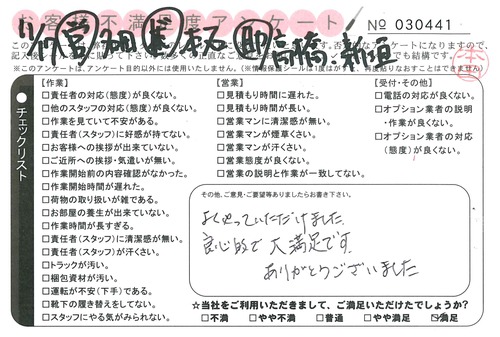 お客様不満足度アンケート
No 030441
【作業】
□責任者の対応(態度)が良くない。
□他のスタッフの対応(態度)が良くない。
□作業を見ていて不安がある。
□責任者(スタッフ)に好感が持てない。
□お客様への挨拶が出来ていない。
□ご近所への挨拶・気遣いが無い。
□作業開始前の内容確認がなかった。
□作業開始時間が遅れた。
□荷物の取り扱いが雑である。
□お部屋の養生が出来ていない。
□作業時間が長すぎる。
□責任者(スタッフ)に清潔感が無い。
□責任者(スタッフ)が汗くさい。
□トラックが汚い。
□梱包資材が汚い。
□運転が不安(下手)である。
□靴下の履き替えをしてない。
□スタッフにやる気がみられない。
【営業】
□見積もり時間に遅れた。
□見積もり時間が長い。
□営業マンに清潔感が無い。
□営業マンが煙草くさい。
□営業マンが汗くさい。
□営業態度が良くない。
□営業の説明と作業が一致してない。
【受付・その他】
□電話の対応が良くない。
□オプション業者の説明
・作業が良くない。
□オプション業者の対応
(態度)が良くない。
チェックリスト
その他、ご意見・ご要望等ありましたらお書き下さい。
よくやっていただけました。
良心的で大満足です。
ありがとうございました
☆当社をご利用いただきまして、ご満足いただけたでしょうか?
□不満 □やや不満 □普通 □やや満足 ☑満足